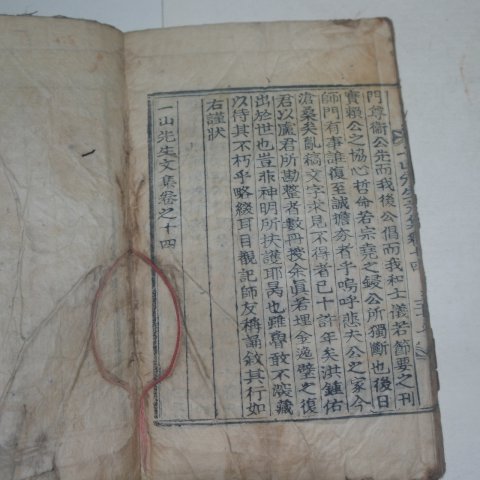 門尊衛公先而我後公倡而我和士儀若節要之刊
實賴公之協心哲命若宗堯之錢公所獨斷也後日
師門有事誰復至誠擔夯者乎嗚呼悲夫公之家今
滄桑矣亂稿文字求見不得者已十許年矣洪鍾佑
君以盧君所勘整者數冊授余真若埋金逸璧之復
出於世也豈非神明所扶護耶昺也雖魯敢不泼藏
以待其不朽乎略綴耳目覩記師友稱誦敘其行如
右謹狀
一山先生文集卷之十四